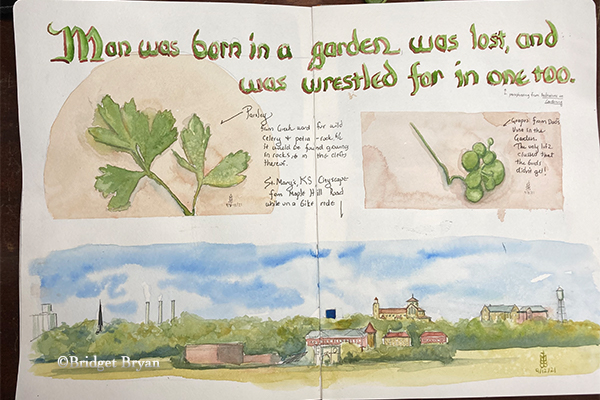 Man was born in a garden, was lost, and
was wrestled for in one too.
Parsley
from Greek word for wild
celery + petra - rock.
It would be found growing
in rocks + in the clefts
thereof.
St. Mary's, KS Cityscape
from Maple Hill Road
while on a bike ride
Grapes from
Vine in the
Garden.
The only
that
the birds
didn't get!
©Bridget Bryan